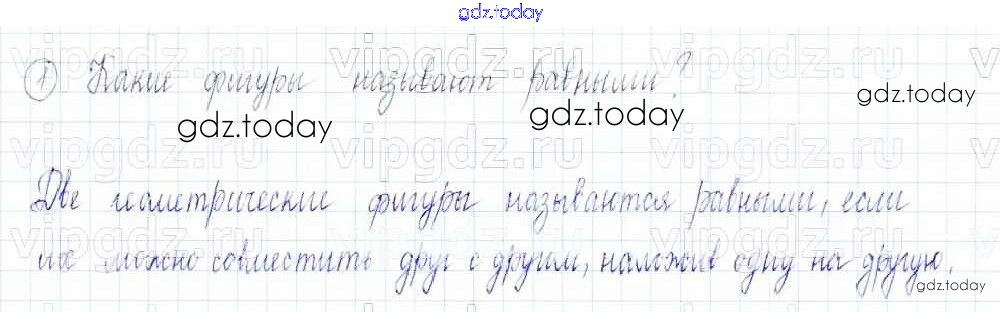 gdz.today
vipgdz.ru vipgdz.ru vipgdz.ru
① Какие фигуры называют равными?
gdz.today gdz.today gdz.today
vipgdz.ru vipgdz.ru vipgdz.ru
Две геометрические фигуры называются равными, если
vipgdz.ru vipgdz.ru vipgdz.ru
их можно совместить друг с другом, наложив одну на другую.
gdz.today